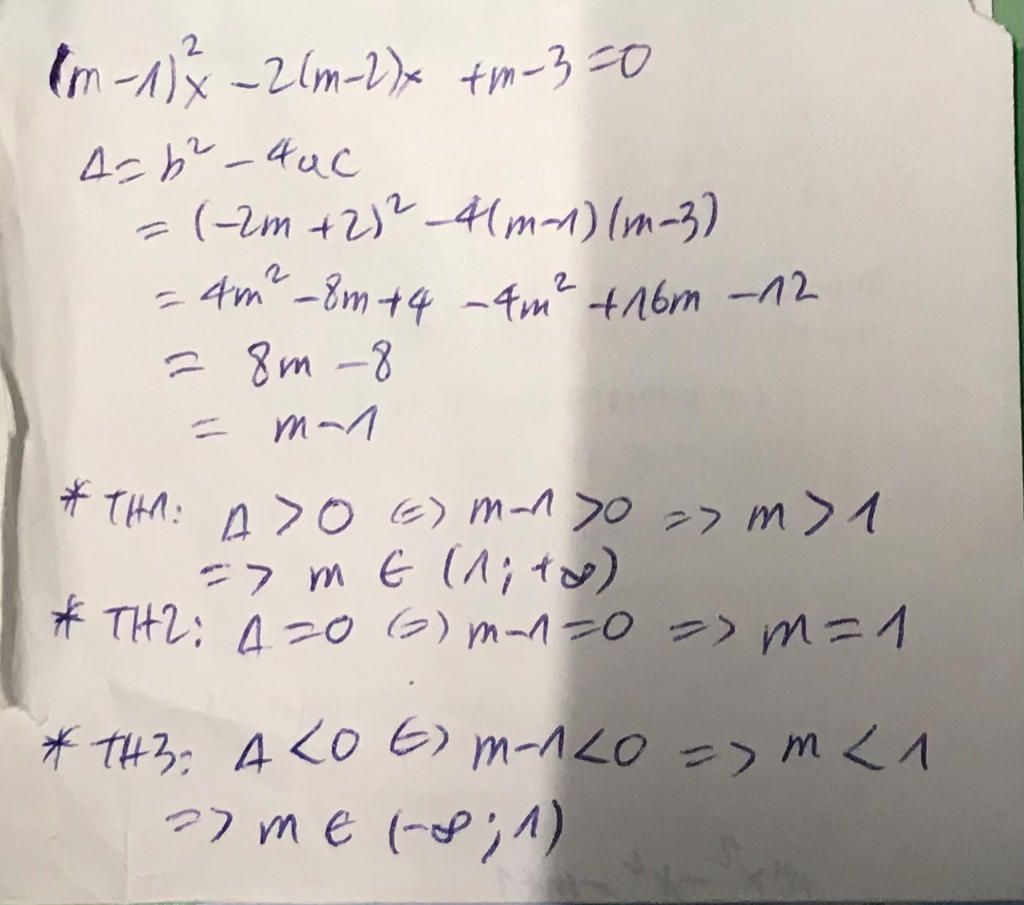 (m-1)²x - 2(m-2)x + m-3 = 0
Δ = b² - 4ac
= (-2m+2)² - 4(m-1)(m-3)
= 4m² - 8m + 4 - 4m² + 16m - 12
= 8m - 8
= m - 1
* TH1: Δ > 0 <=> m-1 > 0 => m > 1
=> m ∈ (1; +∞)
* TH2: Δ = 0 <=> m-1 = 0 => m = 1
* TH3: Δ < 0 <=> m-1 < 0 => m < 1
=> m ∈ (-∞; 1)